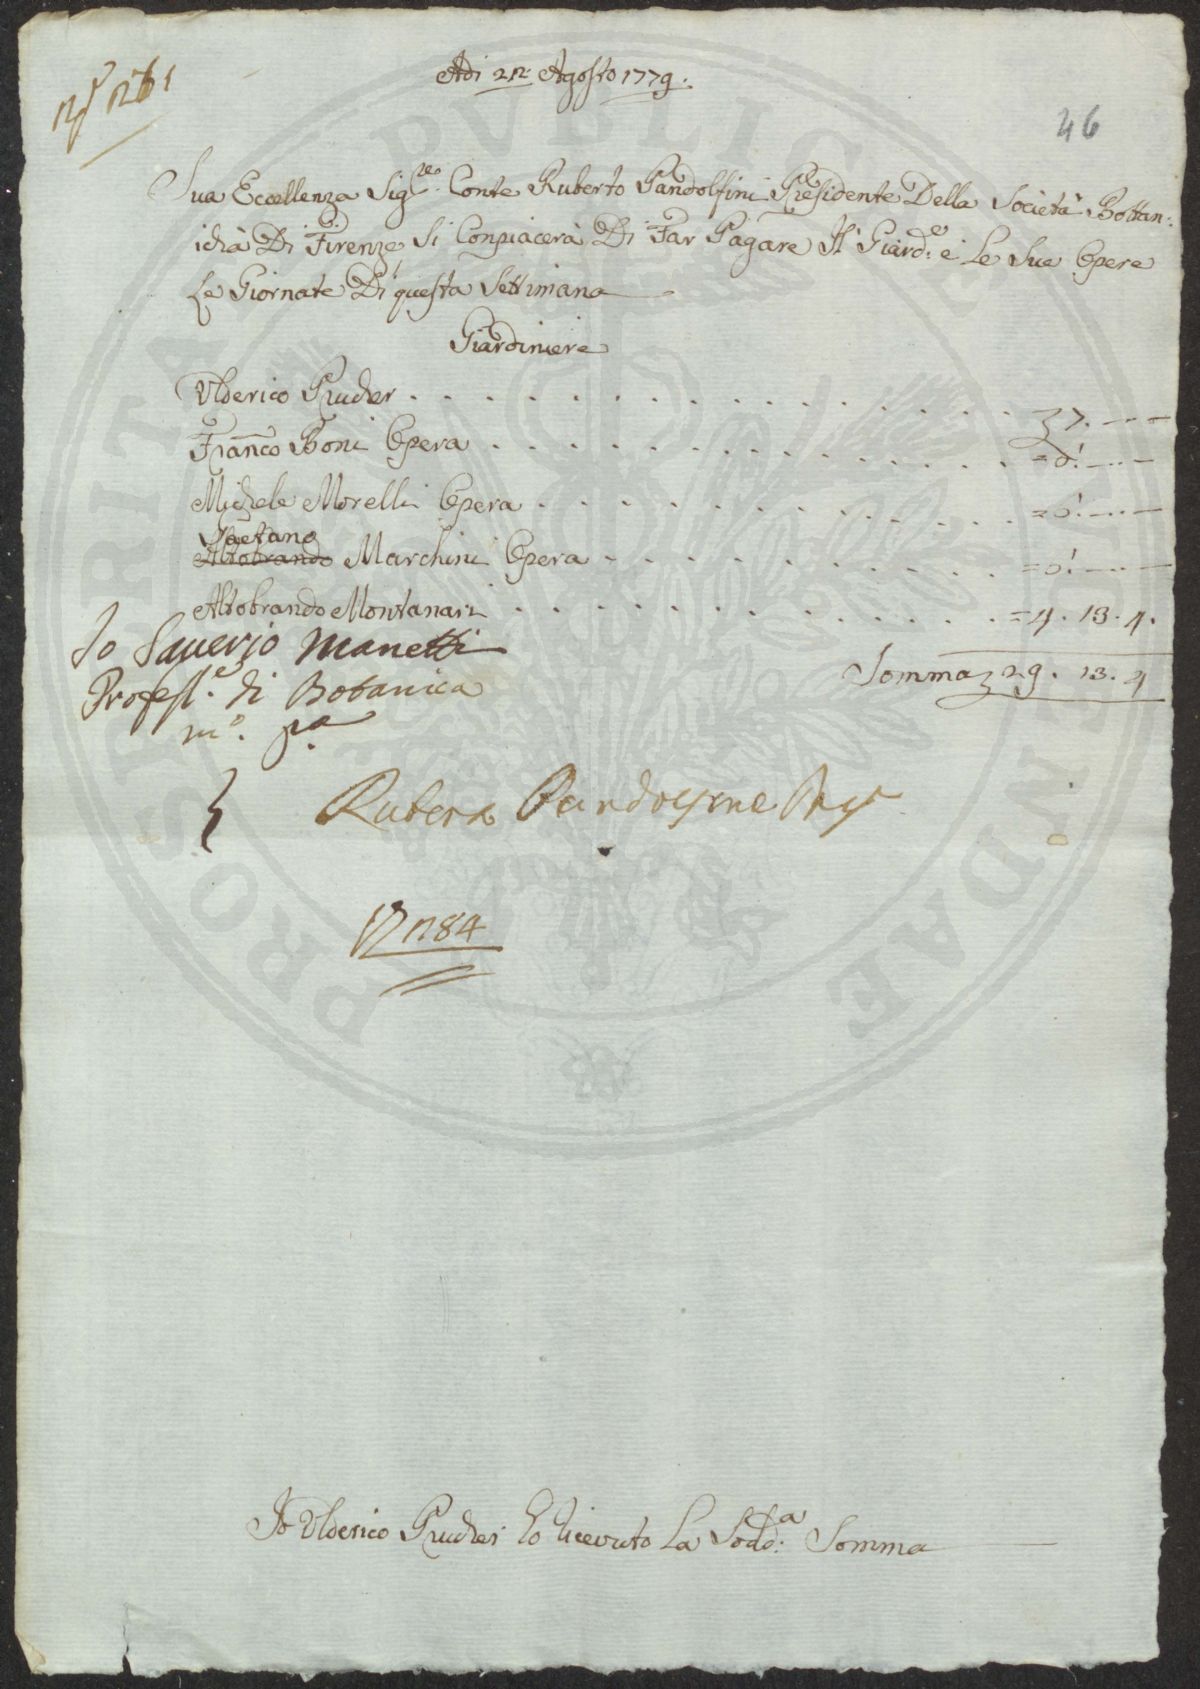 Adi 21 Agosto 1779.
46
Sua Eccellenza Sig.re Conte Ruberto Pandolfini Presidente Della Società Bottan:
icha Di Firenze, Si Conpiacerà Di Far Pagare Il Giard.e e Le Sue Opere
Le Giornate Di questa Settimana
Giardiniere
Ulderico Prucher
7. — —
Franco Boni Opera
= 6. — —
Michele Morelli Opera
= 6. — —
Gaetano
Altobrando Marchini Opera
= 6. — —
Altobrando Montanari
= 4. 13. 4.
Io Saverio Manetti
Somma 29. 13. 4
Profess.e di Botanica
m.o p.a
Pandolfini
1784
Io Ulderico Prucher ho ricevuto La Sodd.a Somma
PROSPERITATI PUBLICAE AUGENDAE